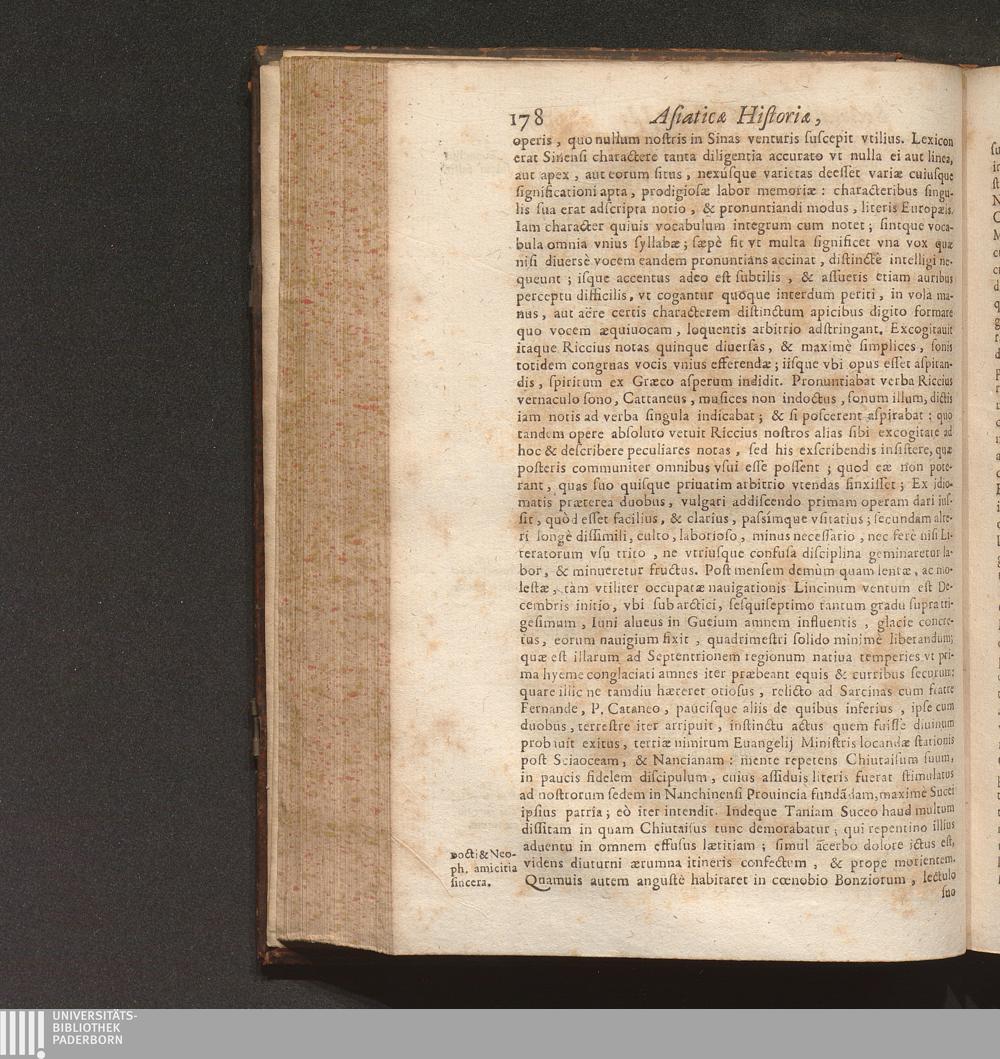 178 Aſiaticæ Hiſtoriæ,
operis, quo nullum noſtris in Sinas venturis ſuſcepit vtilius. Lexicon
erat Sinenſi charactere tanta diligentia accurato vt nulla ei aut linea,
aut apex, aut eorum ſitus, nexúſque varietas deeſſet variæ cuiuſque
ſignificationi apta, prodigioſæ labor memoriæ: characteribus ſingu-
lis ſua erat adſcripta notio, & pronuntiandi modus, literis Europæis.
Iam character quiuis vocabulum integrum cum notet; ſintque voca-
bula omnia vnius ſyllabæ; ſæpè fit vt multa ſignificet vna vox quæ
niſi diuersè vocem eandem pronuntians accinat, diſtinctè intelligi ne-
queunt; iſque accentus adeo eſt ſubtilis, & aſſuetis etiam auribus
perceptu difficilis, vt cogantur quoque interdum periti, in volâ ma-
nus, aut aëre certis characterem diſtinctum apicibus digito formare
quo vocem æquiuocam, loquentis arbitrio adſtringant. Excogitauit
itaque Riccius notas quinque diuerſas, & maximè ſimplices, ſonis
totidem congruas vocis vnius efferendæ; iiſque vbi opus eſſet aſpitan-
dis, ſpiritum ex Græco aſperum indidit. Pronuntiabat verba Riccius
vernaculo ſono, Cattaneus, muſices non indoctus, ſonum illum, dictis
iam notis ad verba ſingula indicabat; & ſi poſcerent aſpirabat: quo
tandem opere abſoluto vetuit Riccius noſtros alias ſibi excogitare ad
hoc & deſcribere peculiares notas, ſed his exſcribendis inſiſtere, quæ
poſteris communiter omnibus vſui eſſe poſſent; quod eæ non pote-
rant, quas ſuo quiſque priuatim arbitrio vtendas finxiſſet; Ex idio-
matis præterea duobus, vulgari addiſcendo primam operam dari iuſ-
ſit, quòd eſſet facilius, & clarius, paſsimque vſitatius; ſecundam alte-
ri longè diſſimili, culto, laborioſo, minus neceſſario, nec ferè niſi Li-
teratorum vſu trito, ne vtriuſque confuſa diſciplina geminaretur la-
bor, & minueretur fructus. Poſt menſem demùm quam lentæ, ac mo-
leſtæ, tam vtiliter occupatæ nauigationis Lincinum ventum eſt De-
cembris initio, vbi ſub arctici, ſeſquiſeptimo tantum gradu ſupra tri-
geſimum, Iuni alueus in Gueium amnem influentis, glacie concre-
tus, eorum nauigium fixit, quadrimeſtri ſolido minimè liberandum;
quæ eſt illarum ad Septentrionem regionum natiua temperies vt pri-
ma hyeme conglaciati amnes iter præbeant equis & curribus ſecurum:
quare illic ne tamdiu hæreret otioſus, relicto ad Sarcinas cum fratre
Fernande, P. Cataneo, pauciſque aliis de quibus inferius, ipſe cum
duobus, terreſtre iter arripuit, inſtinctu actus quem fuiſſè diuinum
probauit exitus, tertiæ nimirum Euangelij Miniſtris locandæ ſtationis
poſt Sciaoceam, & Nancianam: mente repetens Chiutaiſum ſuum,
in paucis fidelem diſcipulum, cuius aſſiduis literis fuerat ſtimulatus
ad noſtrorum ſedem in Nanchinenſi Prouincia fundãdam, maximè Sucei
ipſius patria; eò iter intendit. Indeque Taniam Suceo haud multum
diſſitam in quam Chiutaiſus tunc demorabatur; qui repentino illius
aduentu in omnem effuſus lætitiam; ſimul acerbo dolore ictus eſt,
videns diuturni ærumna itineris confectum, & prope morientem.
Quamuis autem anguſtè habitaret in cœnobio Bonziorum, lectulo
ſuo
Docti & Neo-
ph. amicitia
ſincera.
UNIVERSITÄTS-
BIBLIOTHEK
PADERBORN